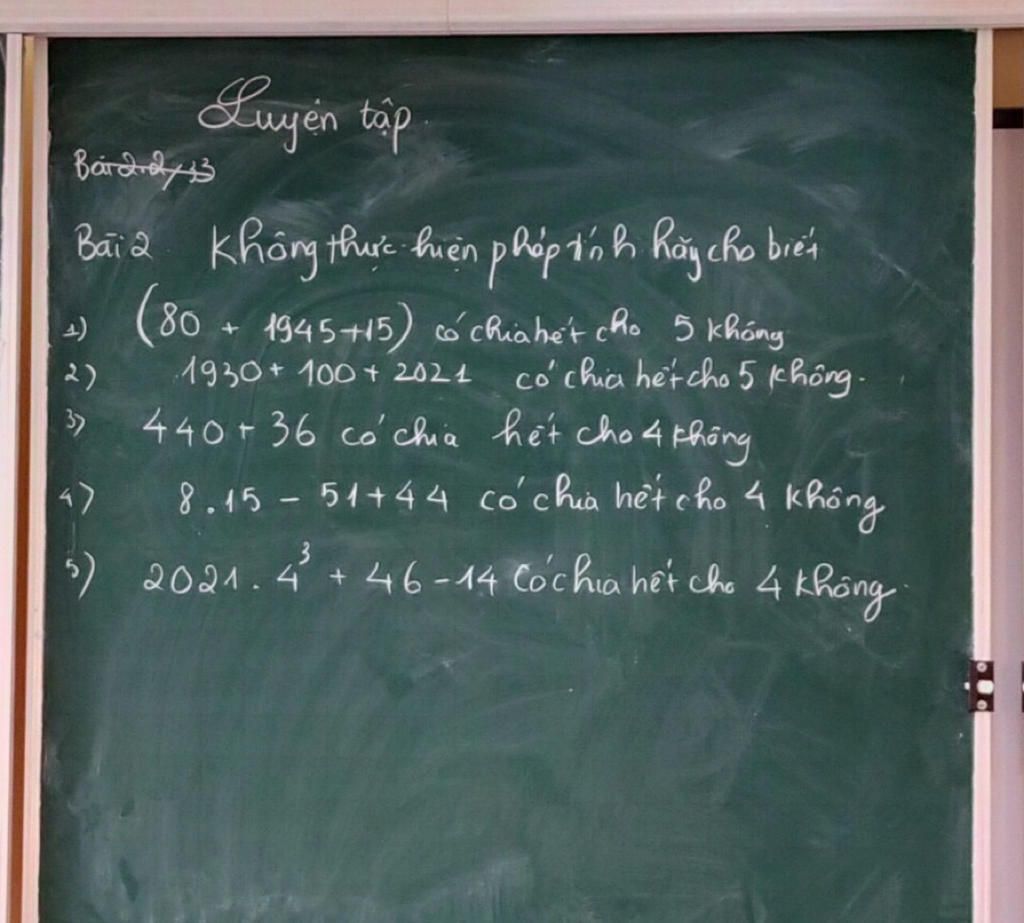 Luyện tập.
Bài 2.2/33
Bài 2 Không thực hiện phép tính hãy cho biết
1) (80 + 1945+15) có chia hết cho 5 không
2) 1930+ 100+ 2021 có chia hết cho 5 không.
3) 440 + 36 có chia hết cho 4 không
4) 8.15 - 51+44 có chia hết cho 4 không
5) 2021. 4³ + 46 -14 có chia hết cho 4 không.